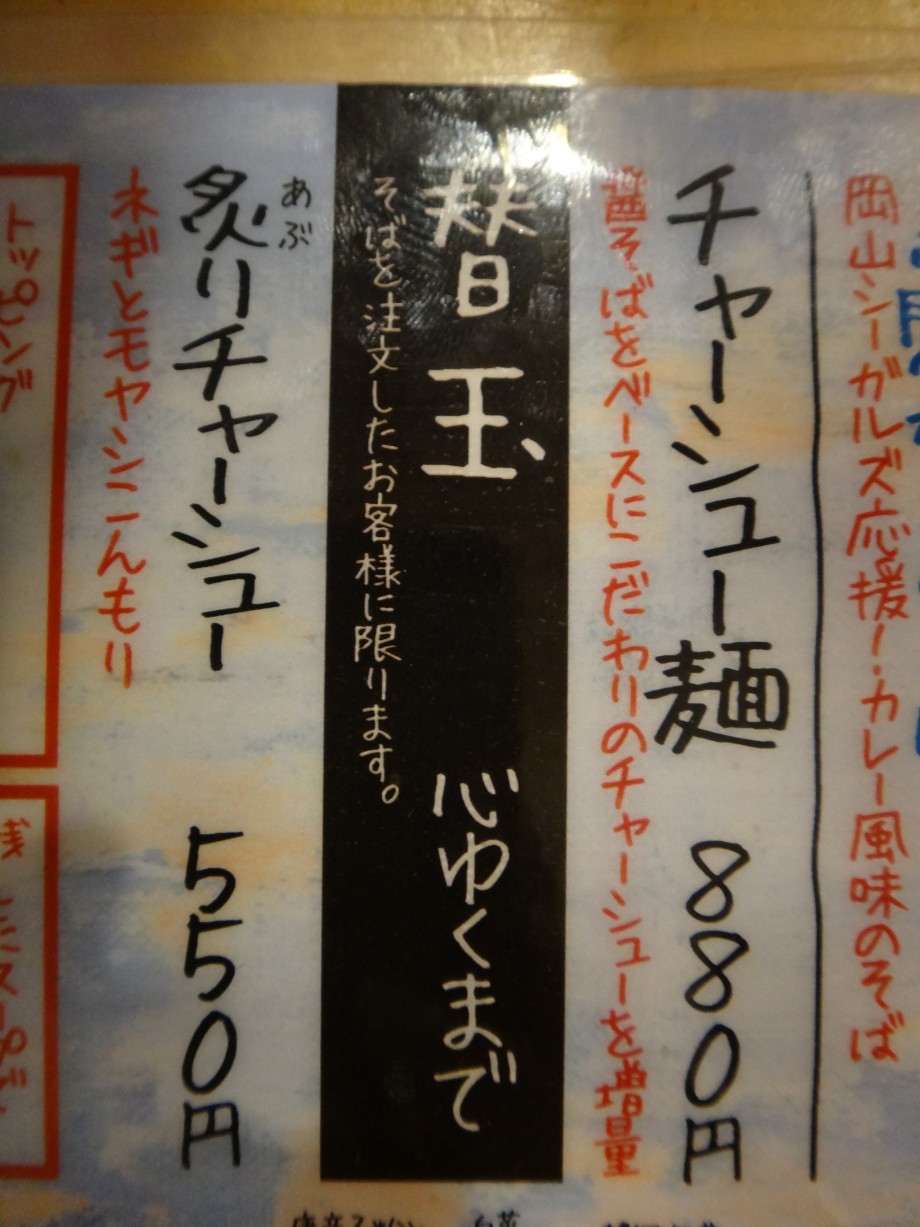 岡山シーガルズ応援！・カレー風味のそば
チャーシュー麺 880円
醤そばをベースにこだわりのチャーシューを増量
替玉 心ゆくまで
そばを注文したお客様に限ります。
あぶ
炙りチャーシュー 550円
ネギとモヤシこんもり
トッピング